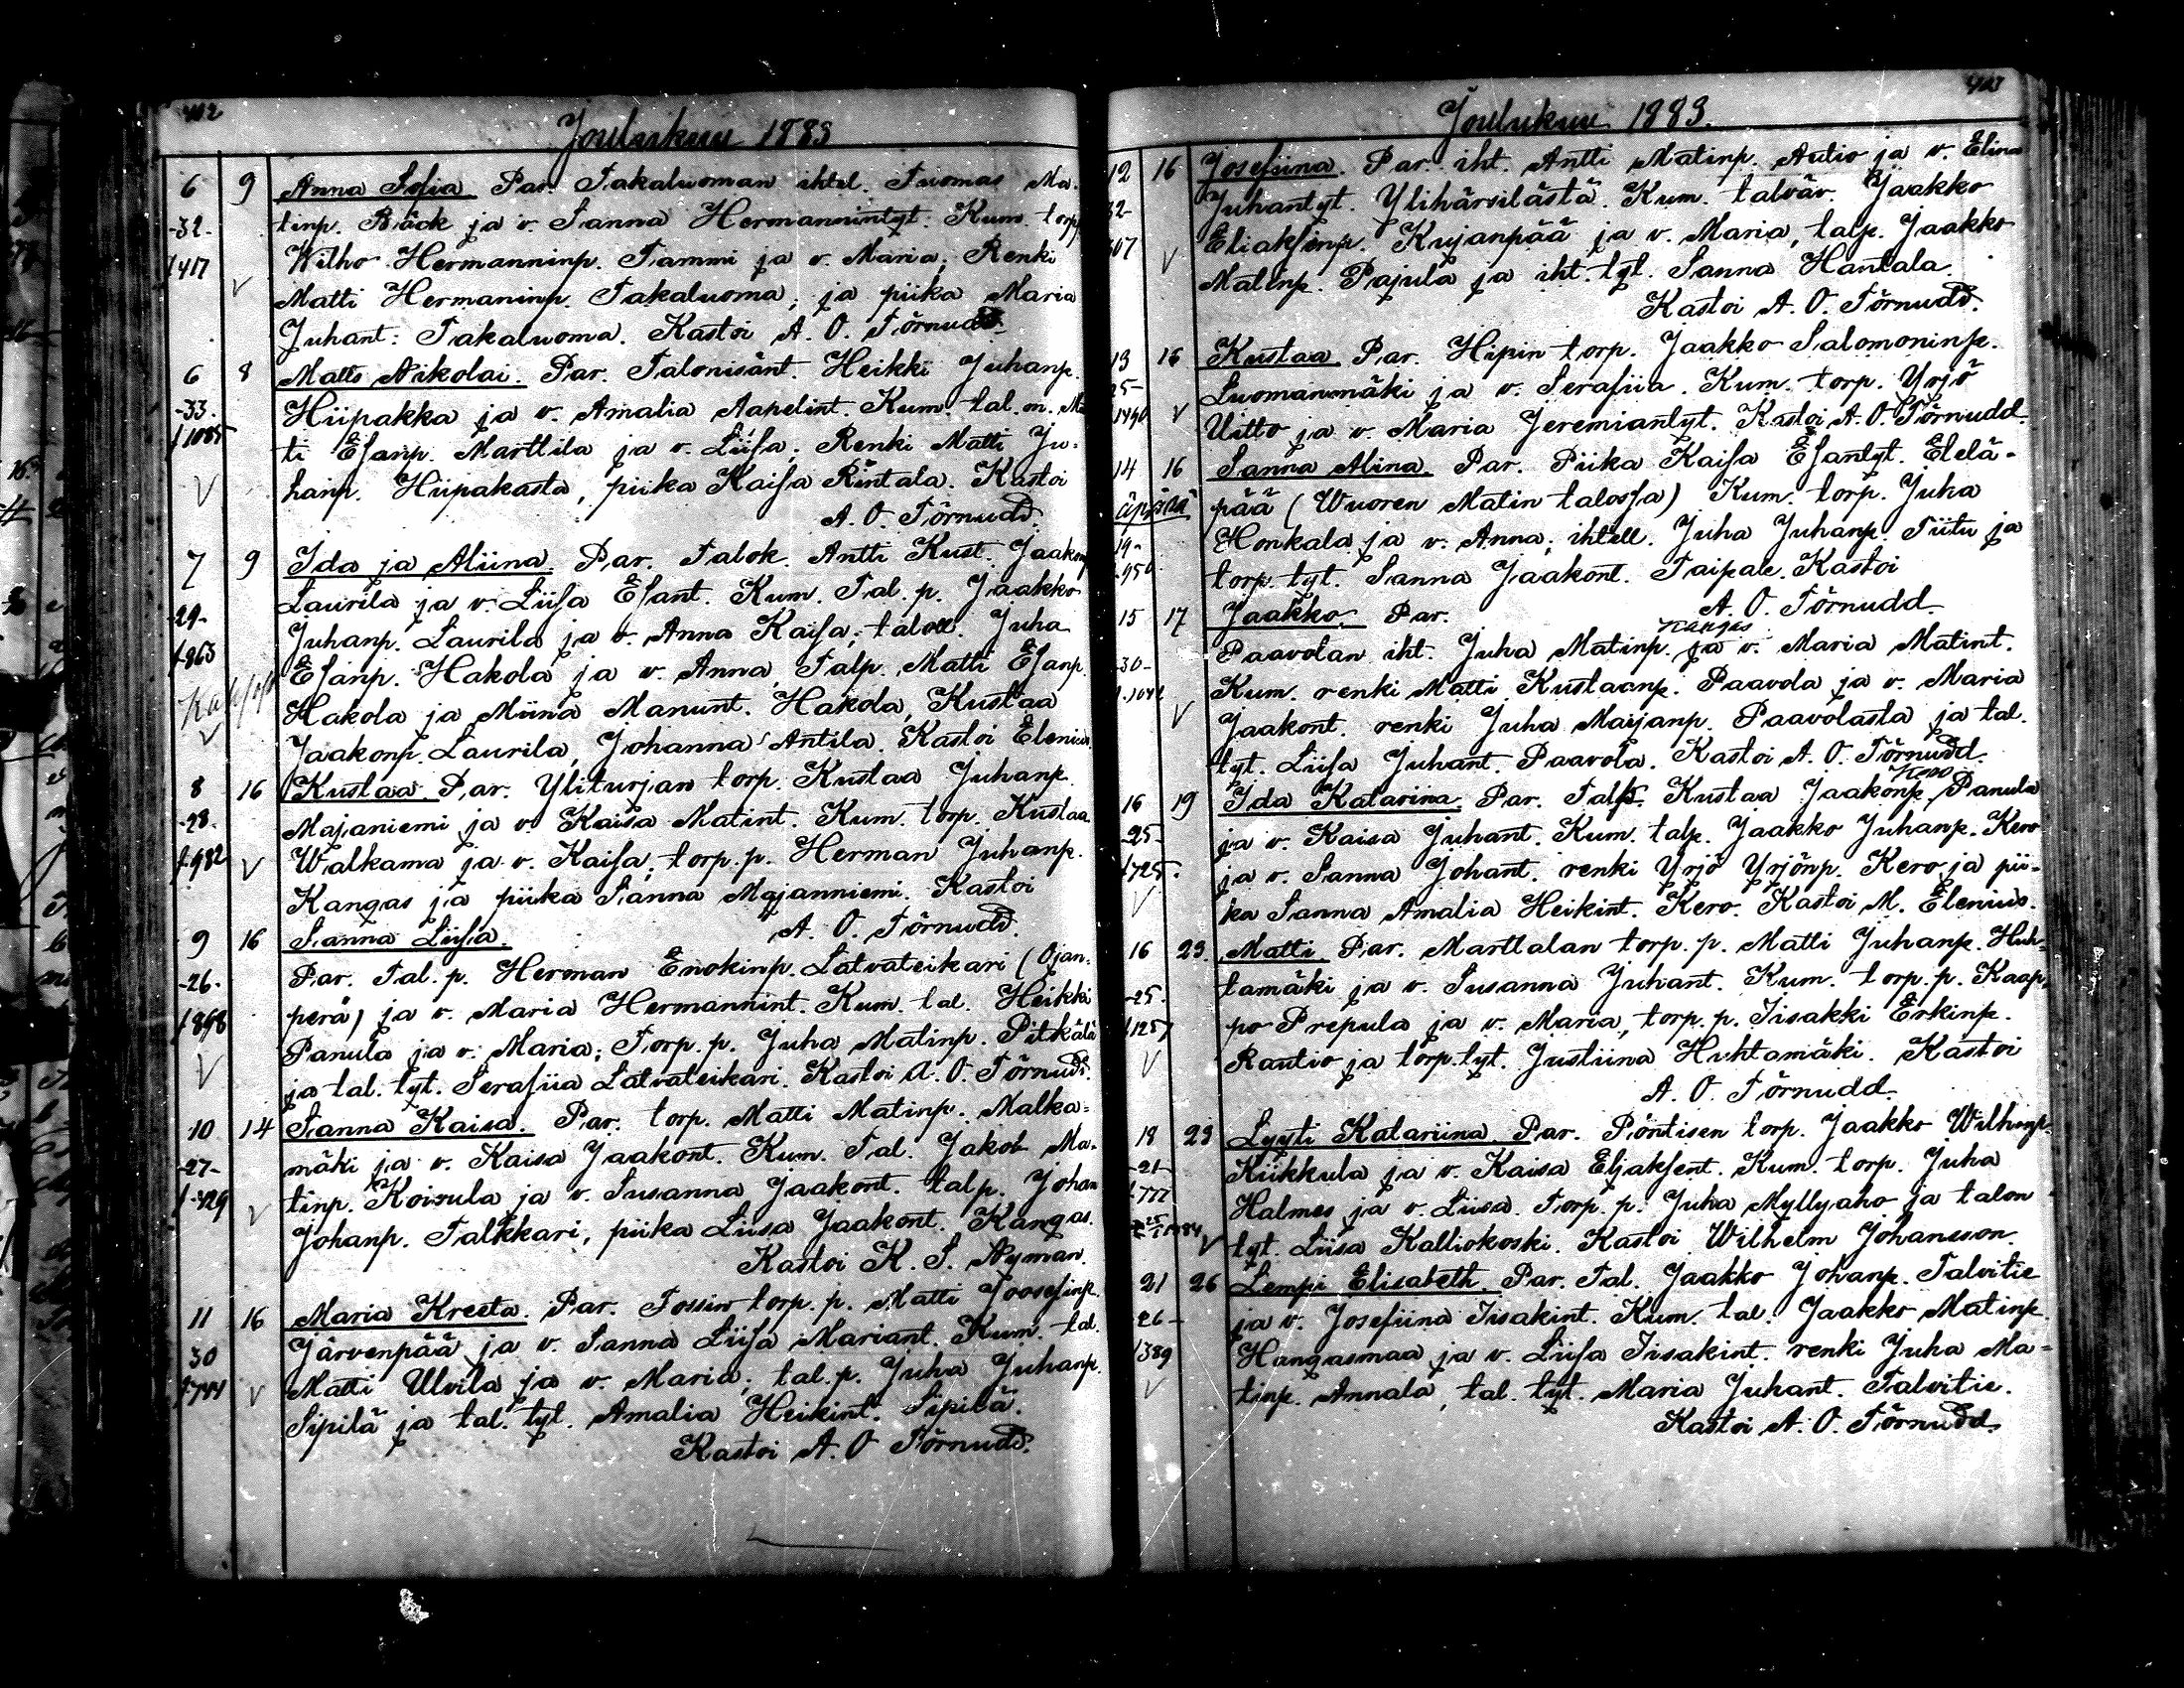 412
Joulukuu 1883
6 9 Anna Sofia Par. Takaluoman ihtel. Tuomas Ma-
-32- tinp. Bäck ja v. Sanna Hermannintyt. Kum. torp
f 417 Wilho Hermanninp. Tammi ja v. Maria; Renki
V Matti Hermaninp. Takaluoma, ja piika Maria
Juhant: Takaluoma. Kastoi A. O. Törnudd.
6 8 Matts Nikolai. Par. Talonisänt. Heikki Juhanp.
-33. Hiipakka ja v. Amalia Aapelint. Kum. tal. on. Ma
f 1085 ti Esanp. Marttila ja v. Liisa; Renki Matti Ju-
V hanp. Hiipakasta, piika Kaisa Rintala. Kastoi
A. O. Törnudd.
7 9 Ida ja Aliina. Par. Talok. Antti Kust. Jaakonp
Laurila ja v. Liisa Esant. Kum. Tal. p. Jaakko
-29- Juhanp. Laurila ja v. Anna Kaisa; taloll. Juha
f 863 Esanp. Hakola ja v. Anna, Talp. Matti Esanp.
Hakola ja Miina Manunt. Hakola, Kustaa
V Jaakonp. Laurila, Johanna Antila. Kastoi Elenius
8 16 Kustaa Par. Yliturjan torp. Kustaa Juhanp.
-28. Majaniemi ja v. Kaisa Matint. Kum. torp. Kustaa
f 982 V Walkama ja v. Kaisa; torp. p. Herman Juhanp.
Kangas ja piika Sanna Majanniemi. Kastoi
9 16 Sanna Liisa. A. O. Törnudd.
-26- Par. Tal. p. Herman Enokinp. Latvateikari (Ojan-
f 898 perä) ja v. Maria Hermannint. Kum. tal. Heikki
Panula ja v. Maria; Torp. p. Juha Matinp. Pitkälä
V ja tal. tyt. Serafiia Latvateikari. Kastoi A. O. Törnudd.
10 14 Sanna Kaisa. Par. torp. Matti Matinp. Malka-
-27- mäki ja v. Kaisa Jaakont. Kum. Tal. Jakob Ma-
f 429 V tinp. Koisula ja v. Susanna Jaakont. talp. Johan
Johanp. Talkkari, piika Liisa Jaakont. Kangas.
Kastoi K. S. Nyman.
11 16 Maria Kreeta. Par. Tossin torp. p. Matti Joosefinp.
30 Järvenpää ja v. Sanna Liisa Mariant. Kum. tal.
V Matti Ulvila ja v. Maria; tal. p. Juha Juhanp.
Sipilä ja tal. tyt. Amalia Heikint. Sipilä.
Kastoi A. O Törnudd.
Joulukuu 1883.
12 16 Josefiina. Par. iht. Antti Matinp. Autio ja v. Elina
32- Juhantyt. Ylihärsilästä. Kum. talväv. Jaakko
V Eliaksenp. Kujanpää ja v. Maria, talp. Jaakko
Matinp. Pajula ja iht. tyt. Sanna Hantala.
Kastoi A. O. Törnudd.
13 16 Kustaa Par. Hipin torp. Jaakko Salomoninp.
25- Luomanmäki ja v. Serafiia. Kum. torp. Yrjö
1490 V Uitto ja v. Maria Jeremiantyt. Kastoi A. O. Törnudd.
14 16 Sanna Alina. Par. Piika Kaisa Esantyt. Elelä-
äpärä pää (Wuoren Matin talossa) Kum. torp. Juha
19- Honkala ja v. Anna; ihtell. Juha Juhanp. Tiitu ja
950 torp. tyt. Sanna Jaakont. Taipale. Kastoi
15 17 Jaakko. Par. A. O. Törnudd
Paavolan iht. Juha Matinp. ja v. Maria Matint.
-30- Kum. renki Matti Kustaanp. Paavola ja v. Maria
V Jaakont. renki Juha Maijanp. Paavolasta ja tal.
tyt. Liisa Juhant. Paavola. Kastoi A. O. Törnudd.
Kero
16 19 Ida Katariina. Par. Talp. Kustaa Jaakonp. Panula
-25- ja v. Kaisa Juhant. Kum. talp. Jaakko Juhanp. Kero
f 725. ja v. Sanna Johant. renki Yrjö Yrjönp. Kero ja pii-
V ka Sanna Amalia Heikint. Kero. Kastoi M. Elenius.
16 23. Matti Par. Marttalan torp. p. Matti Juhanp. Huh-
-25. tamäki ja v. Susanna Juhant. Kum. torp. p. Kaap-
f 1257 po Prepula ja v. Maria, torp. p. Iisakki Erkinp.
V Rantio ja torp. tyt. Justiina Huhtamäki. Kastoi
A. O. Törnudd.
18 23 Lyyti Katariina. Par. Pöntisen torp. Jaakko Wilhmp.
-21- Kiikkula ja v. Kaisa Eljaksent. Kum. torp. Juha
f 777 Halmes ja v. Liisa. Torp. p. Juha Myllyaho ja talon
V tyt. Liisa Kalliokoski. Kastoi Wilhelm Johansson.
21 26 Lempi Elisabeth. Par. Tal. Jaakko Johanp. Talvitie
-26- ja v. Josefiina Iisakint. Kum. tal. Jaakko Matinp.
f 389 Hangasmaa ja v. Liisa Iisakint. renki Juha Ma-
V tinp. Annala, tal. tyt. Maria Juhant. Talvitie.
Kastoi A. O. Törnudd.